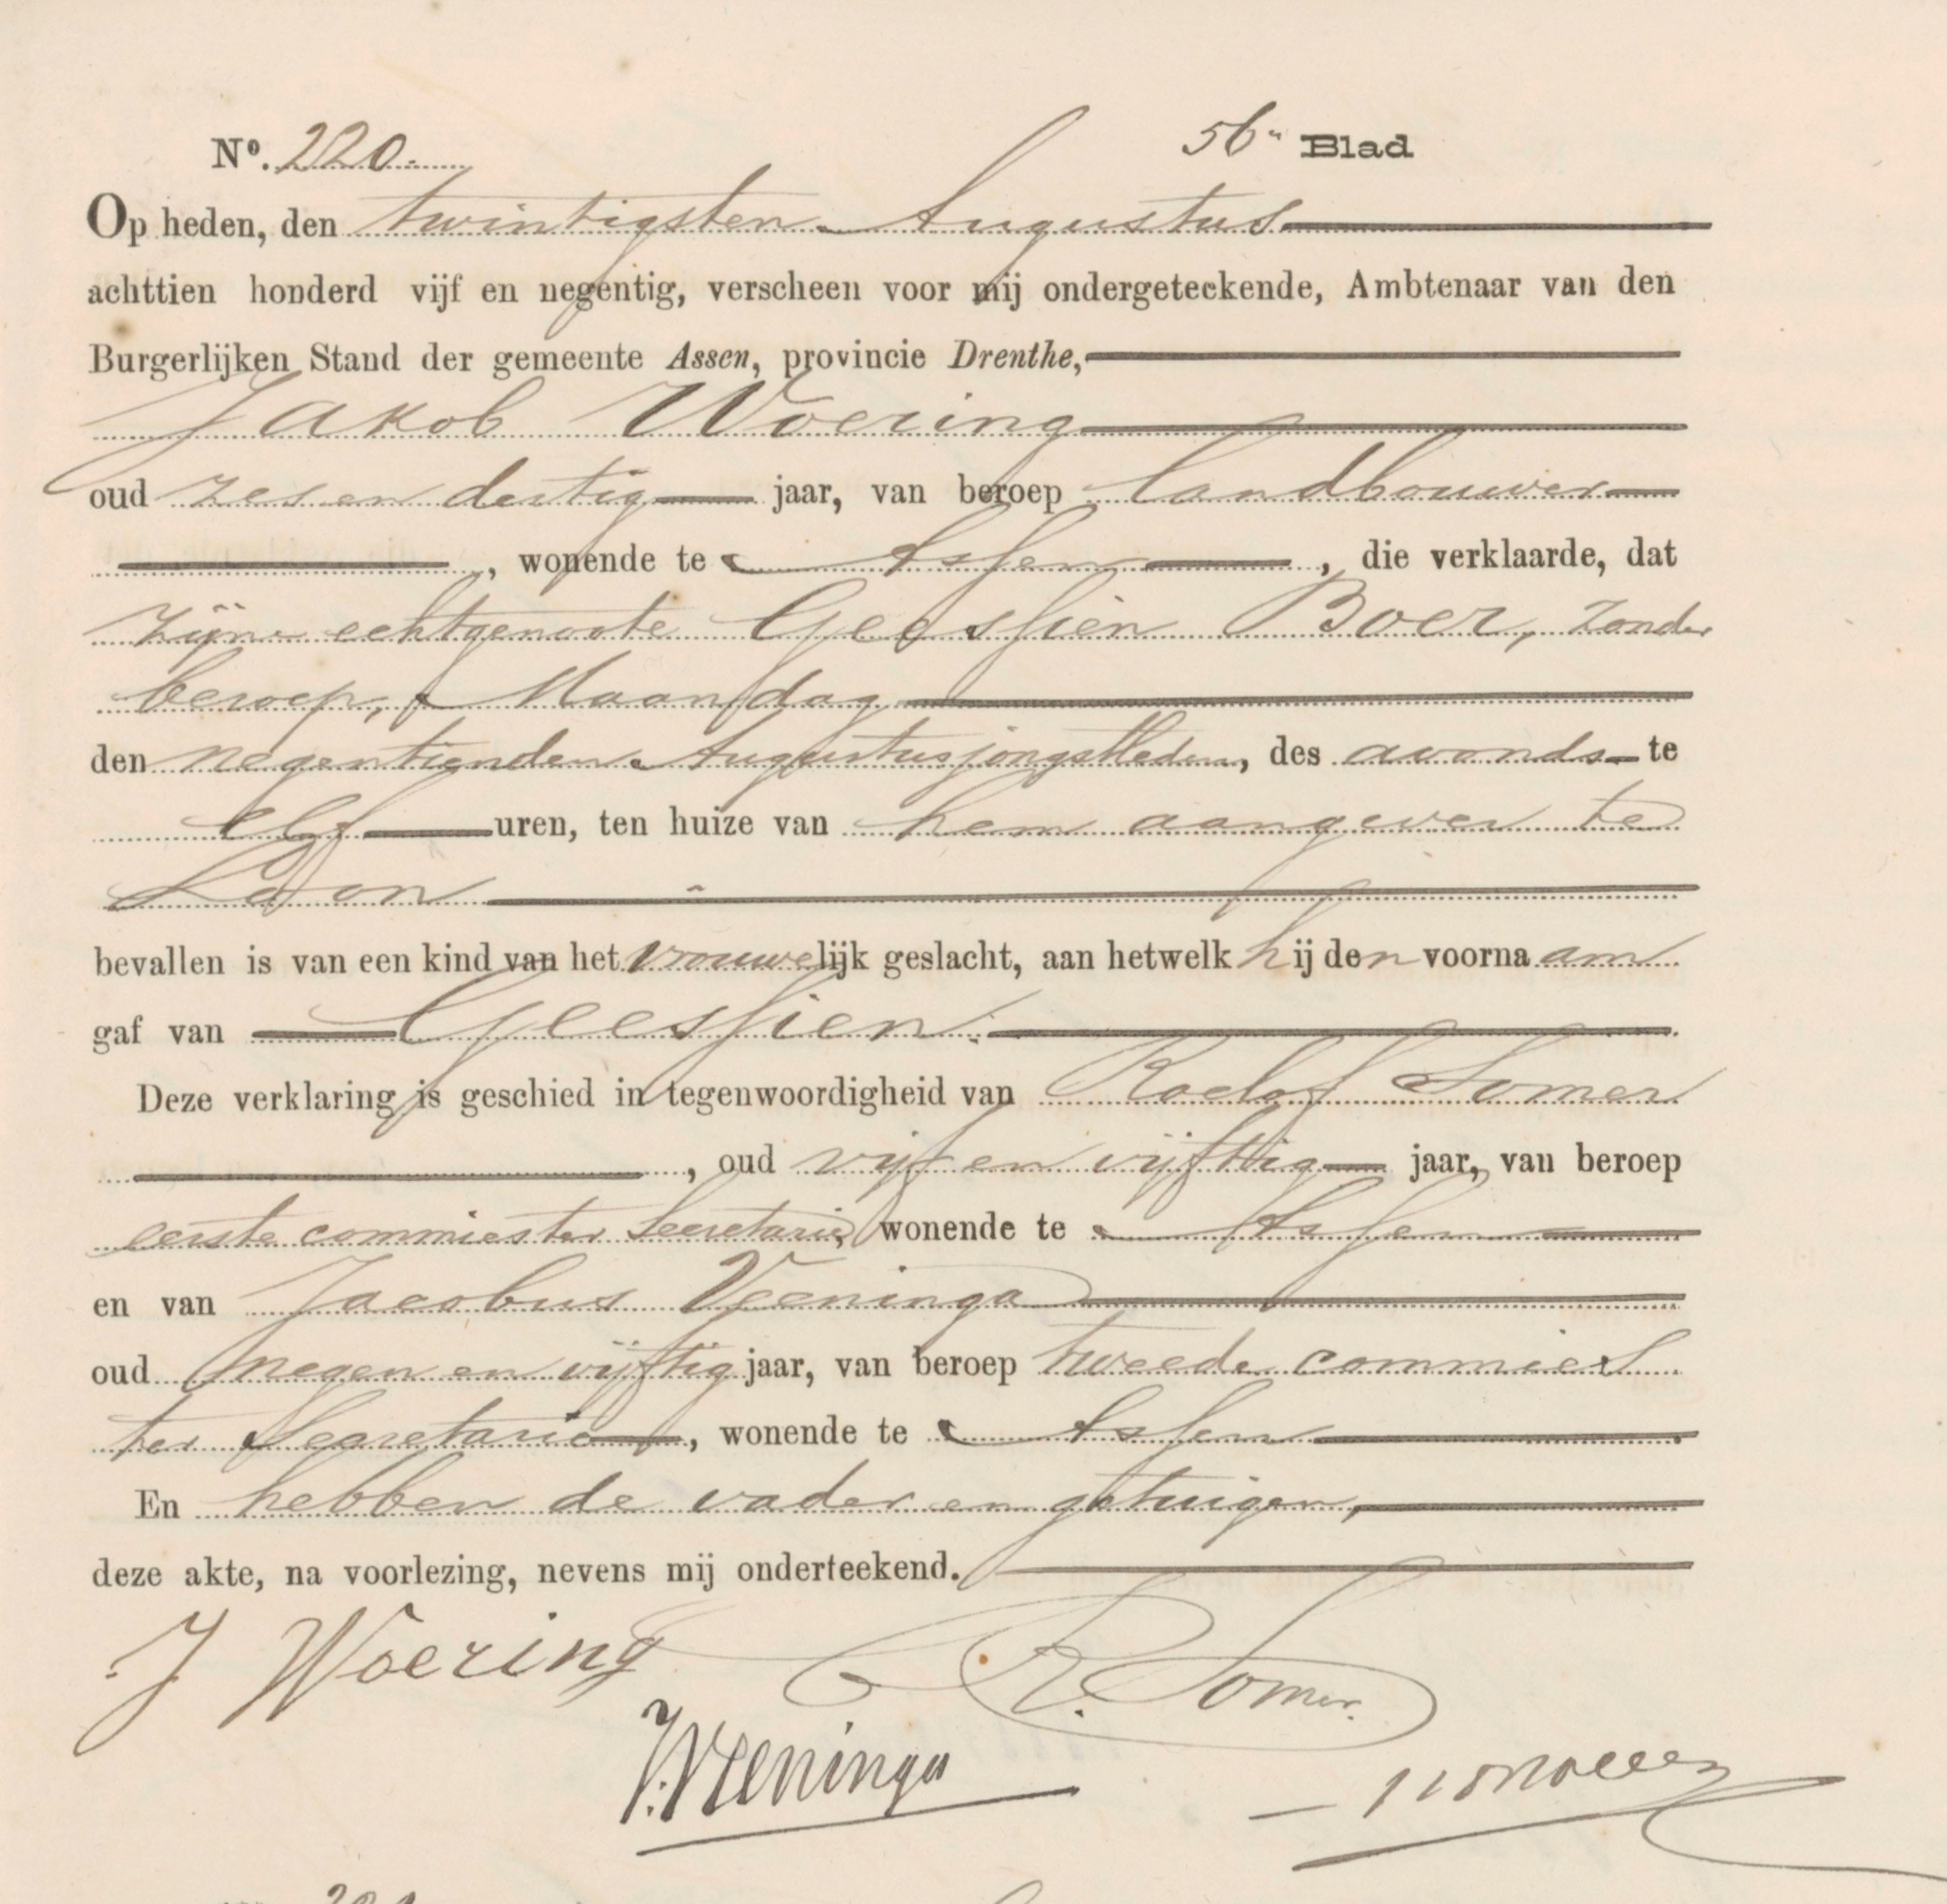 No. 220. 56e Blad
Op heden, den twintigsten Augustus
achttien honderd vijf en negentig, verscheen voor mij ondergeteekende, Ambtenaar van den
Burgerlijken Stand der gemeente Assen, provincie Drenthe,
Jakob Woering
oud zes en dertig jaar, van beroep landbouwer
, wonende te Assen, die verklaarde, dat
zijne echtgenoote Geessien Boer, zonder
beroep, Maandag
den negentienden Augustus jongstleden, des avonds te
elf uren, ten huize van hem aangever te
Loon
bevallen is van een kind van het vrouwelijk geslacht, aan hetwelk hij den voornaam
gaf van Geessien.
Deze verklaring is geschied in tegenwoordigheid van Roelof Somer
, oud vijf en vijftig jaar, van beroep
eerste commies ter Secretarie, wonende te Assen
en van Jacobus Veeninga
oud negen en vijftig jaar, van beroep tweede commies
ter Secretarie, wonende te Assen
En hebben de vader en getuigen,
deze akte, na voorlezing, nevens mij onderteekend.
J Woering R. Somer.
J. Veeninga